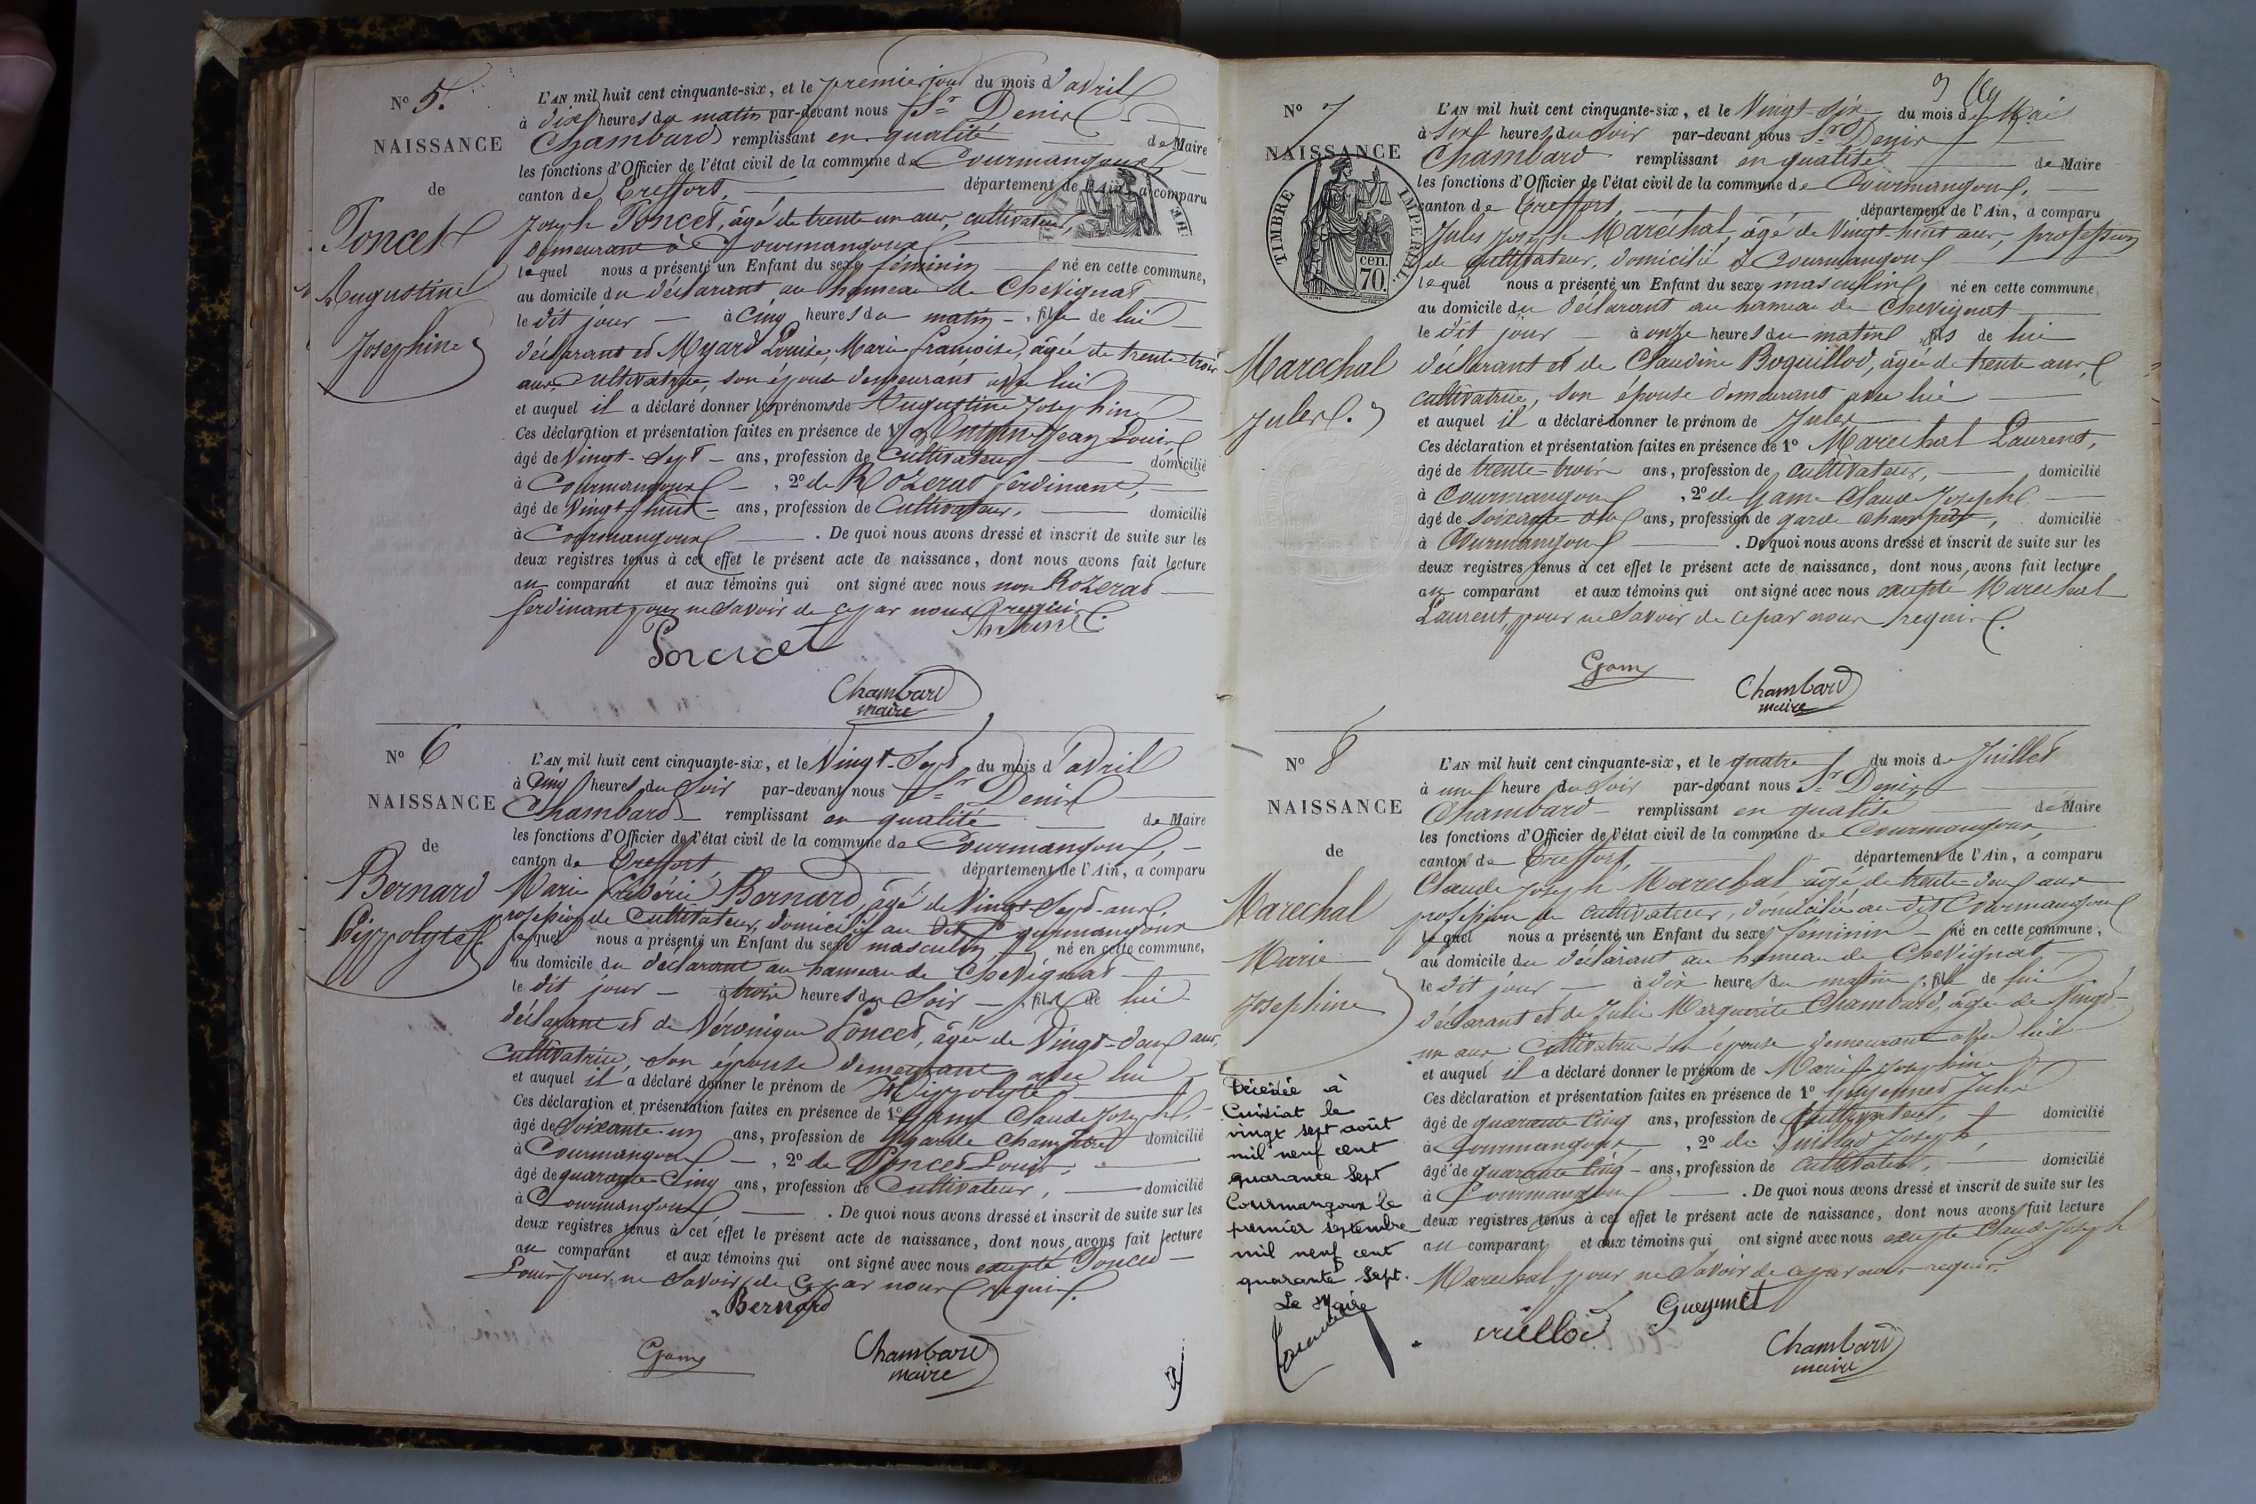 N° 5.
NAISSANCE
de
Poncet
Augustine
Josephine
L'AN mil huit cent cinquante-six, et le premier jour du mois d'avril
à dix heures du matin par-devant nous Sr Denis
Chambard remplissant en qualité de Maire
les fonctions d'Officier de l'état civil de la commune de Courmangoux
canton de Treffort, département de l'Ain, a comparu
Joseph Poncet, âgé de trente un ans, cultivateur,
demeurant à Courmangoux
lequel nous a présenté un Enfant du sexe féminin né en cette commune,
au domicile du déclarant au hameau de Chevignat
le dit jour à Cinq heures du matin, fille de lui
déclarant et Myard Louise Marie francoise, âgée de trente trois
ans Cultivatrice, son épouse demeurant avec lui
et auquel il a déclaré donner les prénoms de Augustine Josephine
Ces déclaration et présentation faites en présence de 1° Jean Louis
âgé de Vingt-Sept ans, profession de Cultivateur domicilié
à Courmangoux, 2° de Rozerat ferdinant,
âgé de Vingt-huit ans, profession de Cultivateur, domicilié
à Courmangoux. De quoi nous avons dressé et inscrit de suite sur les
deux registres tenus à cet effet le présent acte de naissance, dont nous avons fait lecture
au comparant et aux témoins qui ont signé avec nous non Rozerat
ferdinant pour ne Savoir de ce par nous requis
Poncet
Chambard
maire
N° 6
NAISSANCE
de
Bernard
Hippolyte
L'AN mil huit cent cinquante-six, et le Vingt-Sept du mois d'avril
à Cinq heures du Soir par-devant nous Sr Denis
Chambard remplissant en qualité de Maire
les fonctions d'Officier de l'état civil de la commune de Courmangoux,
canton de Treffort, département de l'Ain, a comparu
Marie frédéric Bernard, âgé de Vingt Sept-ans,
profession de Cultivateur, domicilié au dit Courmangoux
lequel nous a présenté un Enfant du sexe masculin né en cette commune,
au domicile du déclarant au hameau de Chevignat
le dit jour à trois heures du Soir, fils de lui
déclarant et de Véronique Poncet, âgée de Vingt-deux ans,
Cultivatrice, son épouse demeurant avec lui
et auquel il a déclaré donner le prénom de Hippolyte
Ces déclaration et présentation faites en présence de 1° Game Claude Joseph
âgé de Soixante-un ans, profession de garde champêtre domicilié
à Courmangoux, 2° de Poncet Louis,
âgé de quarante-Cinq ans, profession de Cultivateur, domicilié
à Courmangoux. De quoi nous avons dressé et inscrit de suite sur les
deux registres tenus à cet effet le présent acte de naissance, dont nous avons fait lecture
au comparant et aux témoins qui ont signé avec nous excepté Poncet
Louis pour ne Savoir de ce par nous requis.
Bernard
Game
Chambard
maire
N° 7
NAISSANCE
TIMBRE IMPERIAL
70 cen.
Marechal
Jules.
L'AN mil huit cent cinquante-six, et le Vingt-Six du mois de Mai
à Six heures du Soir par-devant nous Sr Denis
Chambard remplissant en qualité de Maire
les fonctions d'Officier de l'état civil de la commune de Courmangoux,
canton de Treffort département de l'Ain, a comparu
Jules Joseph Maréchal, âgé de Vingt-huit ans, profession
de Cultivateur, domicilié à Courmangoux
lequel nous a présenté un Enfant du sexe masculin né en cette commune
au domicile du déclarant au hameau de Chevignat
le dit jour à onze heures du matin, fils de lui
déclarant et de Claudine Boquillod, âgée de trente ans,
cultivatrice, son épouse demeurant avec lui
et auquel il a déclaré donner le prénom de Jules
Ces déclaration et présentation faites en présence de 1° Marechal Laurent,
âgé de trente-trois ans, profession de Cultivateur, domicilié
à Courmangoux, 2° de Game Claude Joseph
âgé de soixante ans, profession de garde champêtre, domicilié
à Courmangoux. De quoi nous avons dressé et inscrit de suite sur les
deux registres tenus à cet effet le présent acte de naissance, dont nous avons fait lecture
au comparant et aux témoins qui ont signé avec nous excepté Marechal
Laurent, pour ne Savoir de ce par nous requis.
Game
Chambard
maire
N° 8
NAISSANCE
de
Marechal
Marie
Josephine
Décédée à
Cuisiat le
vingt sept août
mil neuf cent
quarante sept
Courmangoux le
premier septembre
mil neuf cent
quarante sept.
Le Maire
L'AN mil huit cent cinquante-six, et le quatre du mois de Juillet
à une heure du Soir par-devant nous Sr Denis
Chambard remplissant en qualité de Maire
les fonctions d'Officier de l'état civil de la commune de Courmangoux,
canton de Treffort, département de l'Ain, a comparu
Claude Joseph Marechal âgé de trente-deux ans
profession de cultivateur, domicilié au dit Courmangoux
lequel nous a présenté un Enfant du sexe feminin né en cette commune,
au domicile du déclarant au hameau de Chevignat
le dit jour à dix heures du matin, fille de lui
déclarant et de Julie Marguerite Chambard, âgée de Vingt-
un ans Cultivatrice son épouse demeurant avec lui
et auquel il a déclaré donner le prénom de Marie Josephine
Ces déclaration et présentation faites en présence de 1° Guyennet Jules
âgé de quarante Cinq ans, profession de Cultivateur, domicilié
à Courmangoux, 2° de Joseph,
âgé de quarante Cinq ans, profession de cultivateur, domicilié
à Courmangoux. De quoi nous avons dressé et inscrit de suite sur les
deux registres tenus à cet effet le présent acte de naissance, dont nous avons fait lecture
au comparant et aux témoins qui ont signé avec nous excepté Claude Joseph
Marechal pour ne Savoir de ce par nous requis.
Chambard
maire